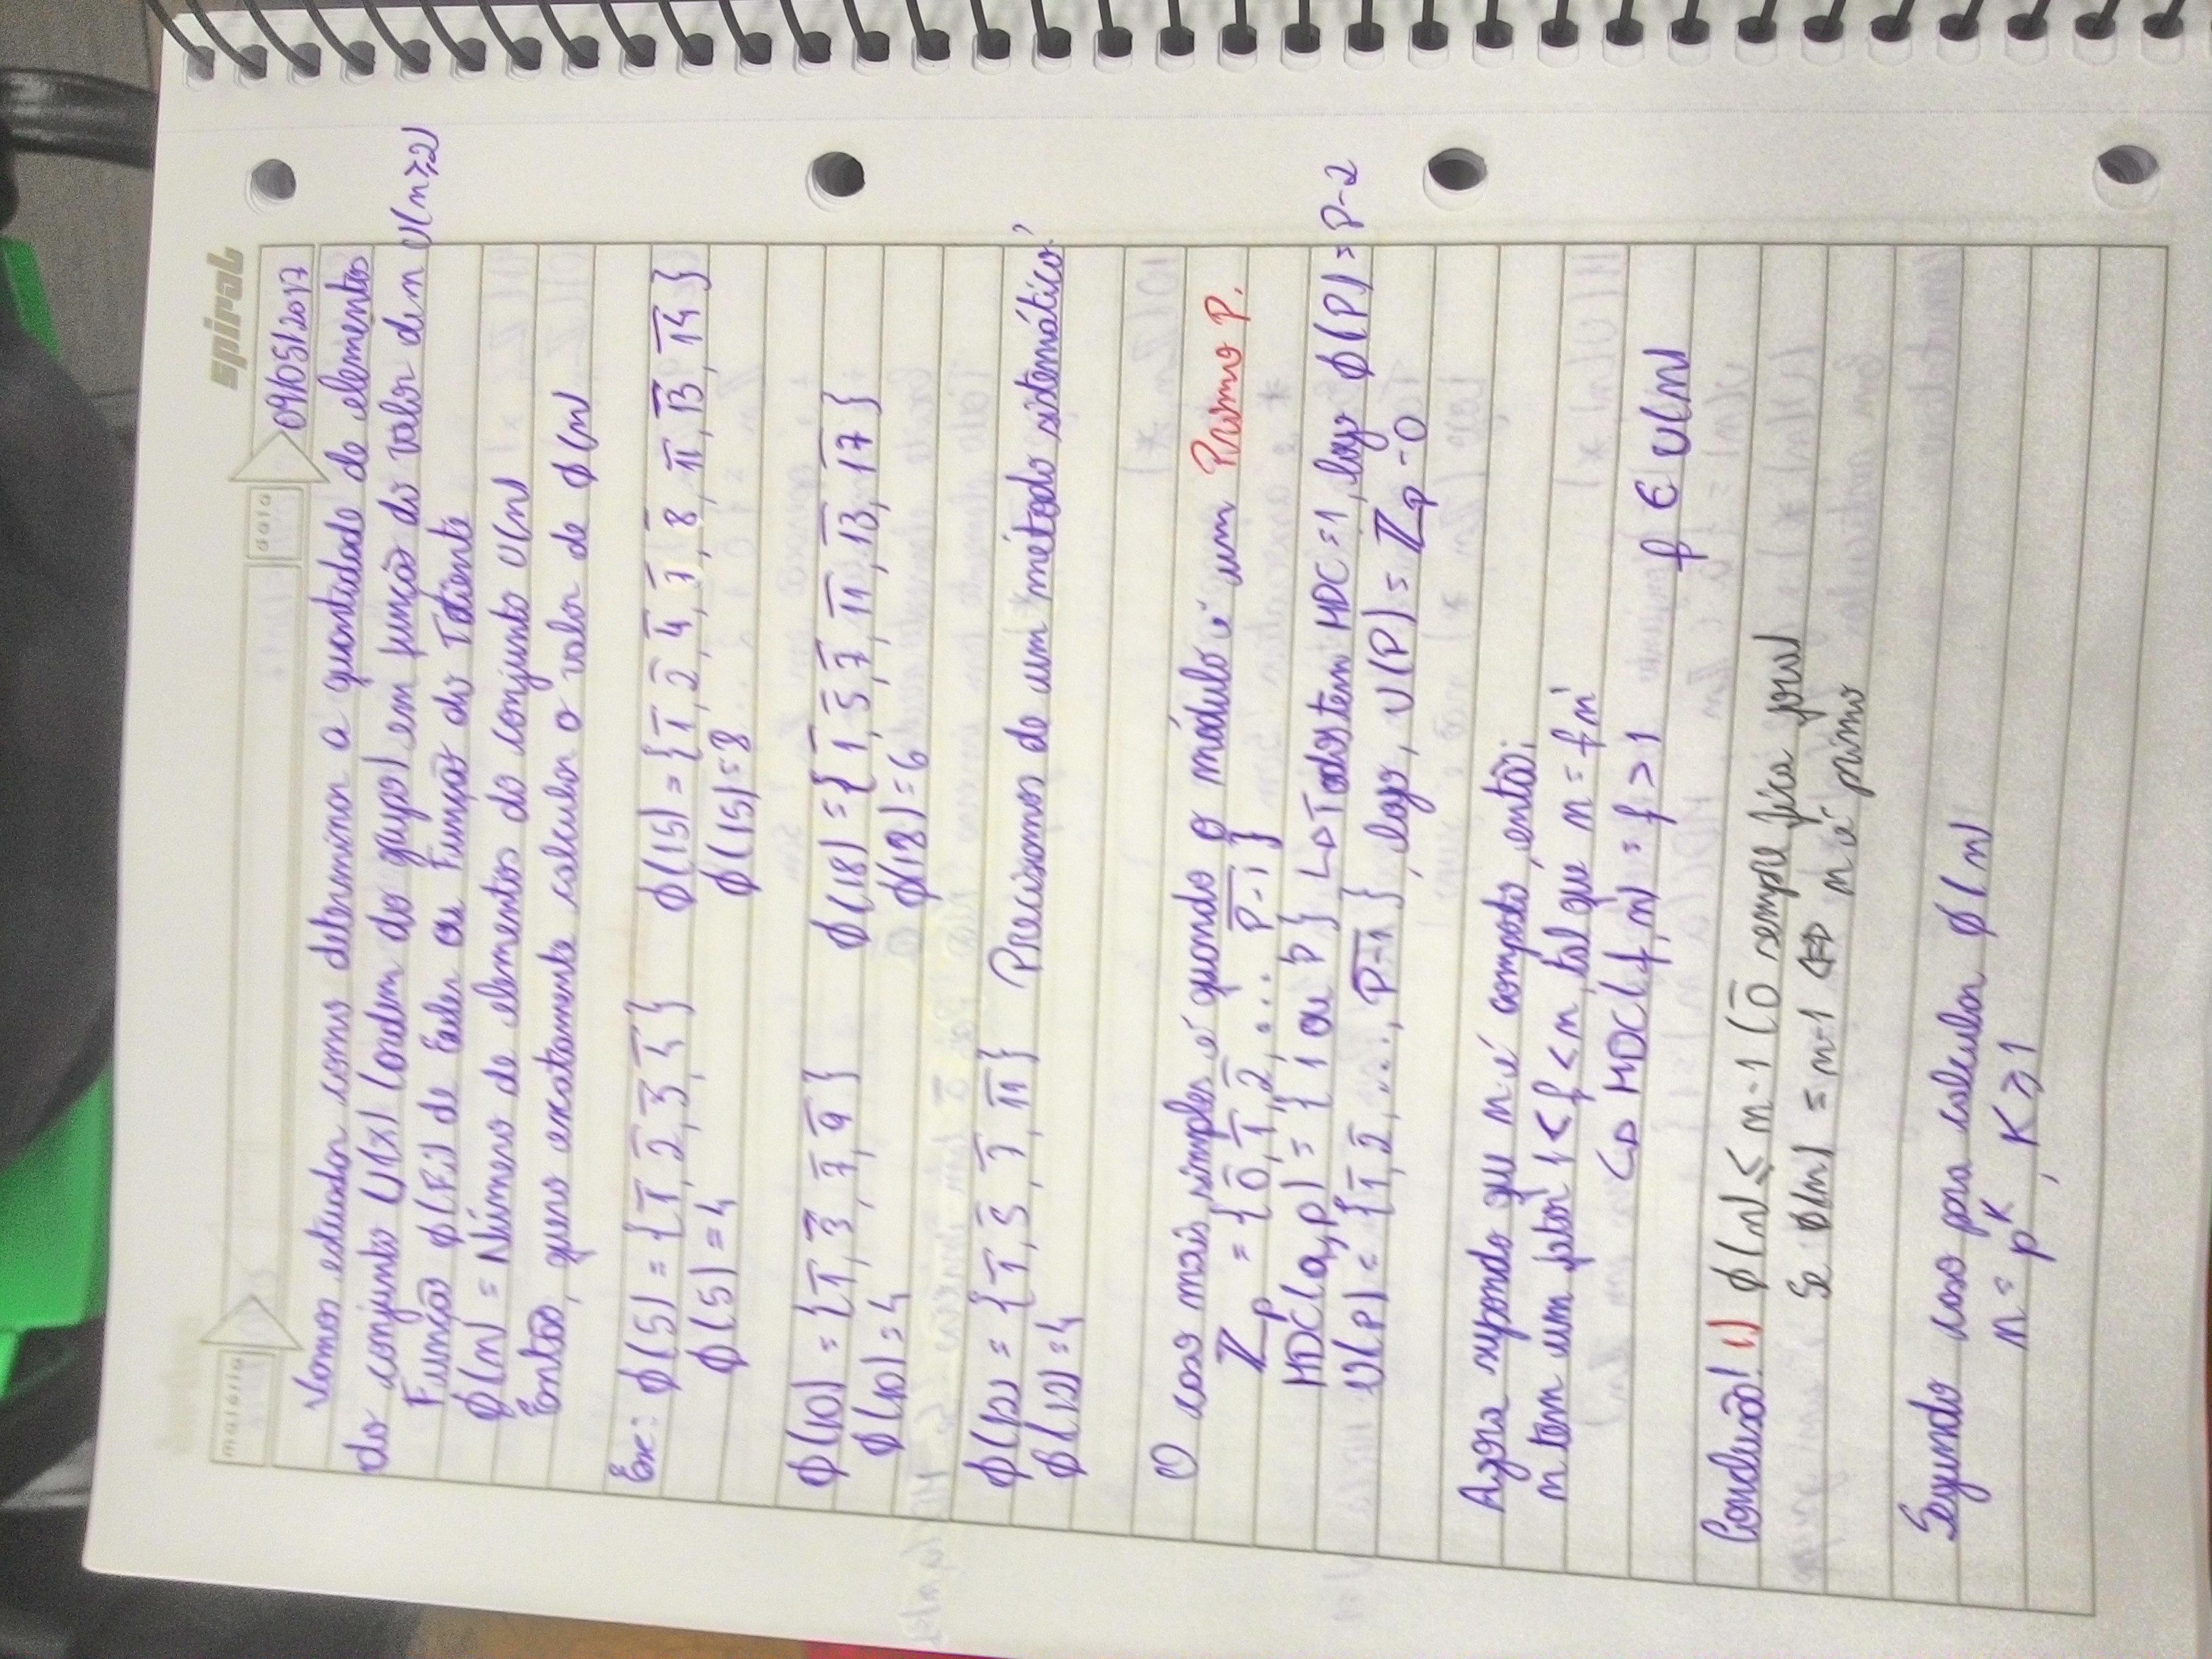 spiral
matéria
data
09/05/2017
Vamos estudar como determinar a quantidade de elementos
do conjunto U(x) (ordem do grupo) em função do valor de n U(n≥2)
Função ϕ(Fi) de Euler ou Função do Totiente
ϕ(n) = Número de elementos do conjunto U(n)
Então, quero exatamente calcular o valor de ϕ(n)
Ex: ϕ(5) = {1̄, 2̄, 3̄, 4̄} ϕ(15) = {1̄, 2̄, 4̄, 7̄, 8̄, 1̄1̄, 1̄3̄, 1̄4̄}
ϕ(5) = 4 ϕ(15) = 8
ϕ(10) = {1̄, 3̄, 7̄, 9̄} ϕ(18) = {1̄, 5̄, 7̄, 1̄1̄, 1̄3̄, 1̄7̄}
ϕ(10) = 4 ϕ(18) = 6
ϕ(12) = {1̄, 5̄, 7̄, 1̄1̄} Precisamos de um "método sistemático"
ϕ(12) = 4
O caso mais simples é quando o módulo é um Primo P.
ℤp = {0̄, 1̄, 2̄, ... P-1}
MDC(a,p) = {1 ou p} ↳ Todos tem MDC = 1, logo ϕ(P) = P-2
U(P) = {1̄, 2̄, ..., P-1}, logo, U(P) = ℤp - 0
Agora supondo que n é composto, então:
n tem um fator 1 < f < n, tal que n = fn'
↳ MDC(f,n) = f > 1 f ∈ U(n)
Conclusão! 1) ϕ(n) ≤ n-1 (0̄ sempre fica fora)
Se ϕ(n) = n-1 ⇔ n é primo
Segundo caso para calcular ϕ(n)
n = p^K, K ≥ 1